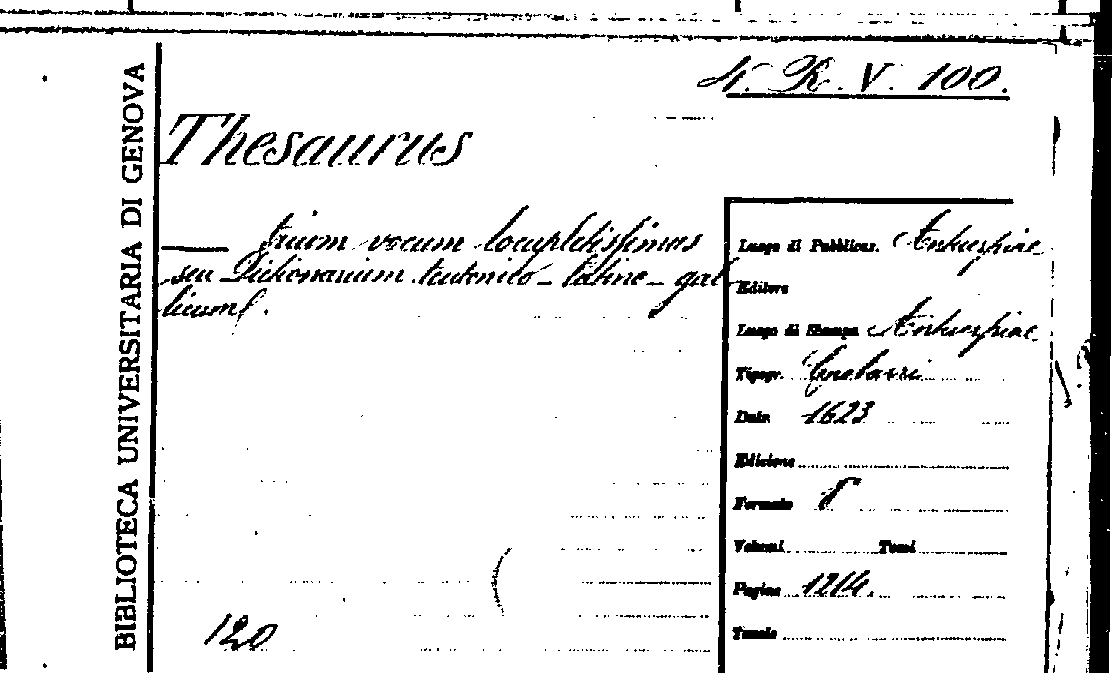 4. R. V. 100.
BIBLIOTECA UNIVERSITARIA DI GENOVA
Thesaurus
— trium vocum locupletissimus
seu Dictionarium teutonico-latino-gal
licum.
Luogo di Pubblicaz. Antuerpiae
Editore
Luogo di Stampa Antuerpiae
Tipogr.
Data 1623
Edizione
Formato 8°
Volumi Tomi
Pagine 1214.
Tavole
120